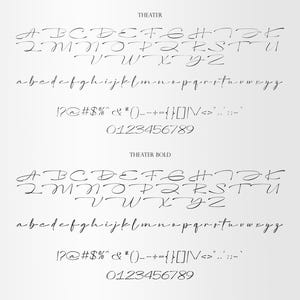 THEATER
A B C D E F G H I J K
L M N O P Q R S T U
V W X Y Z
a b c d e f g h i j k l m n o p q r s t u v w x y z
!?@#$%^&*()_-÷={}[]|\/<>"..':;~
0123456789
THEATER BOLD
A B C D E F G H I J K
L M N O P Q R S T U
V W X Y Z
a b c d e f g h i j k l m n o p q r s t u v w x y z
!?@#$%^&*()_-÷={}[]|\/<>"..':;~
0123456789